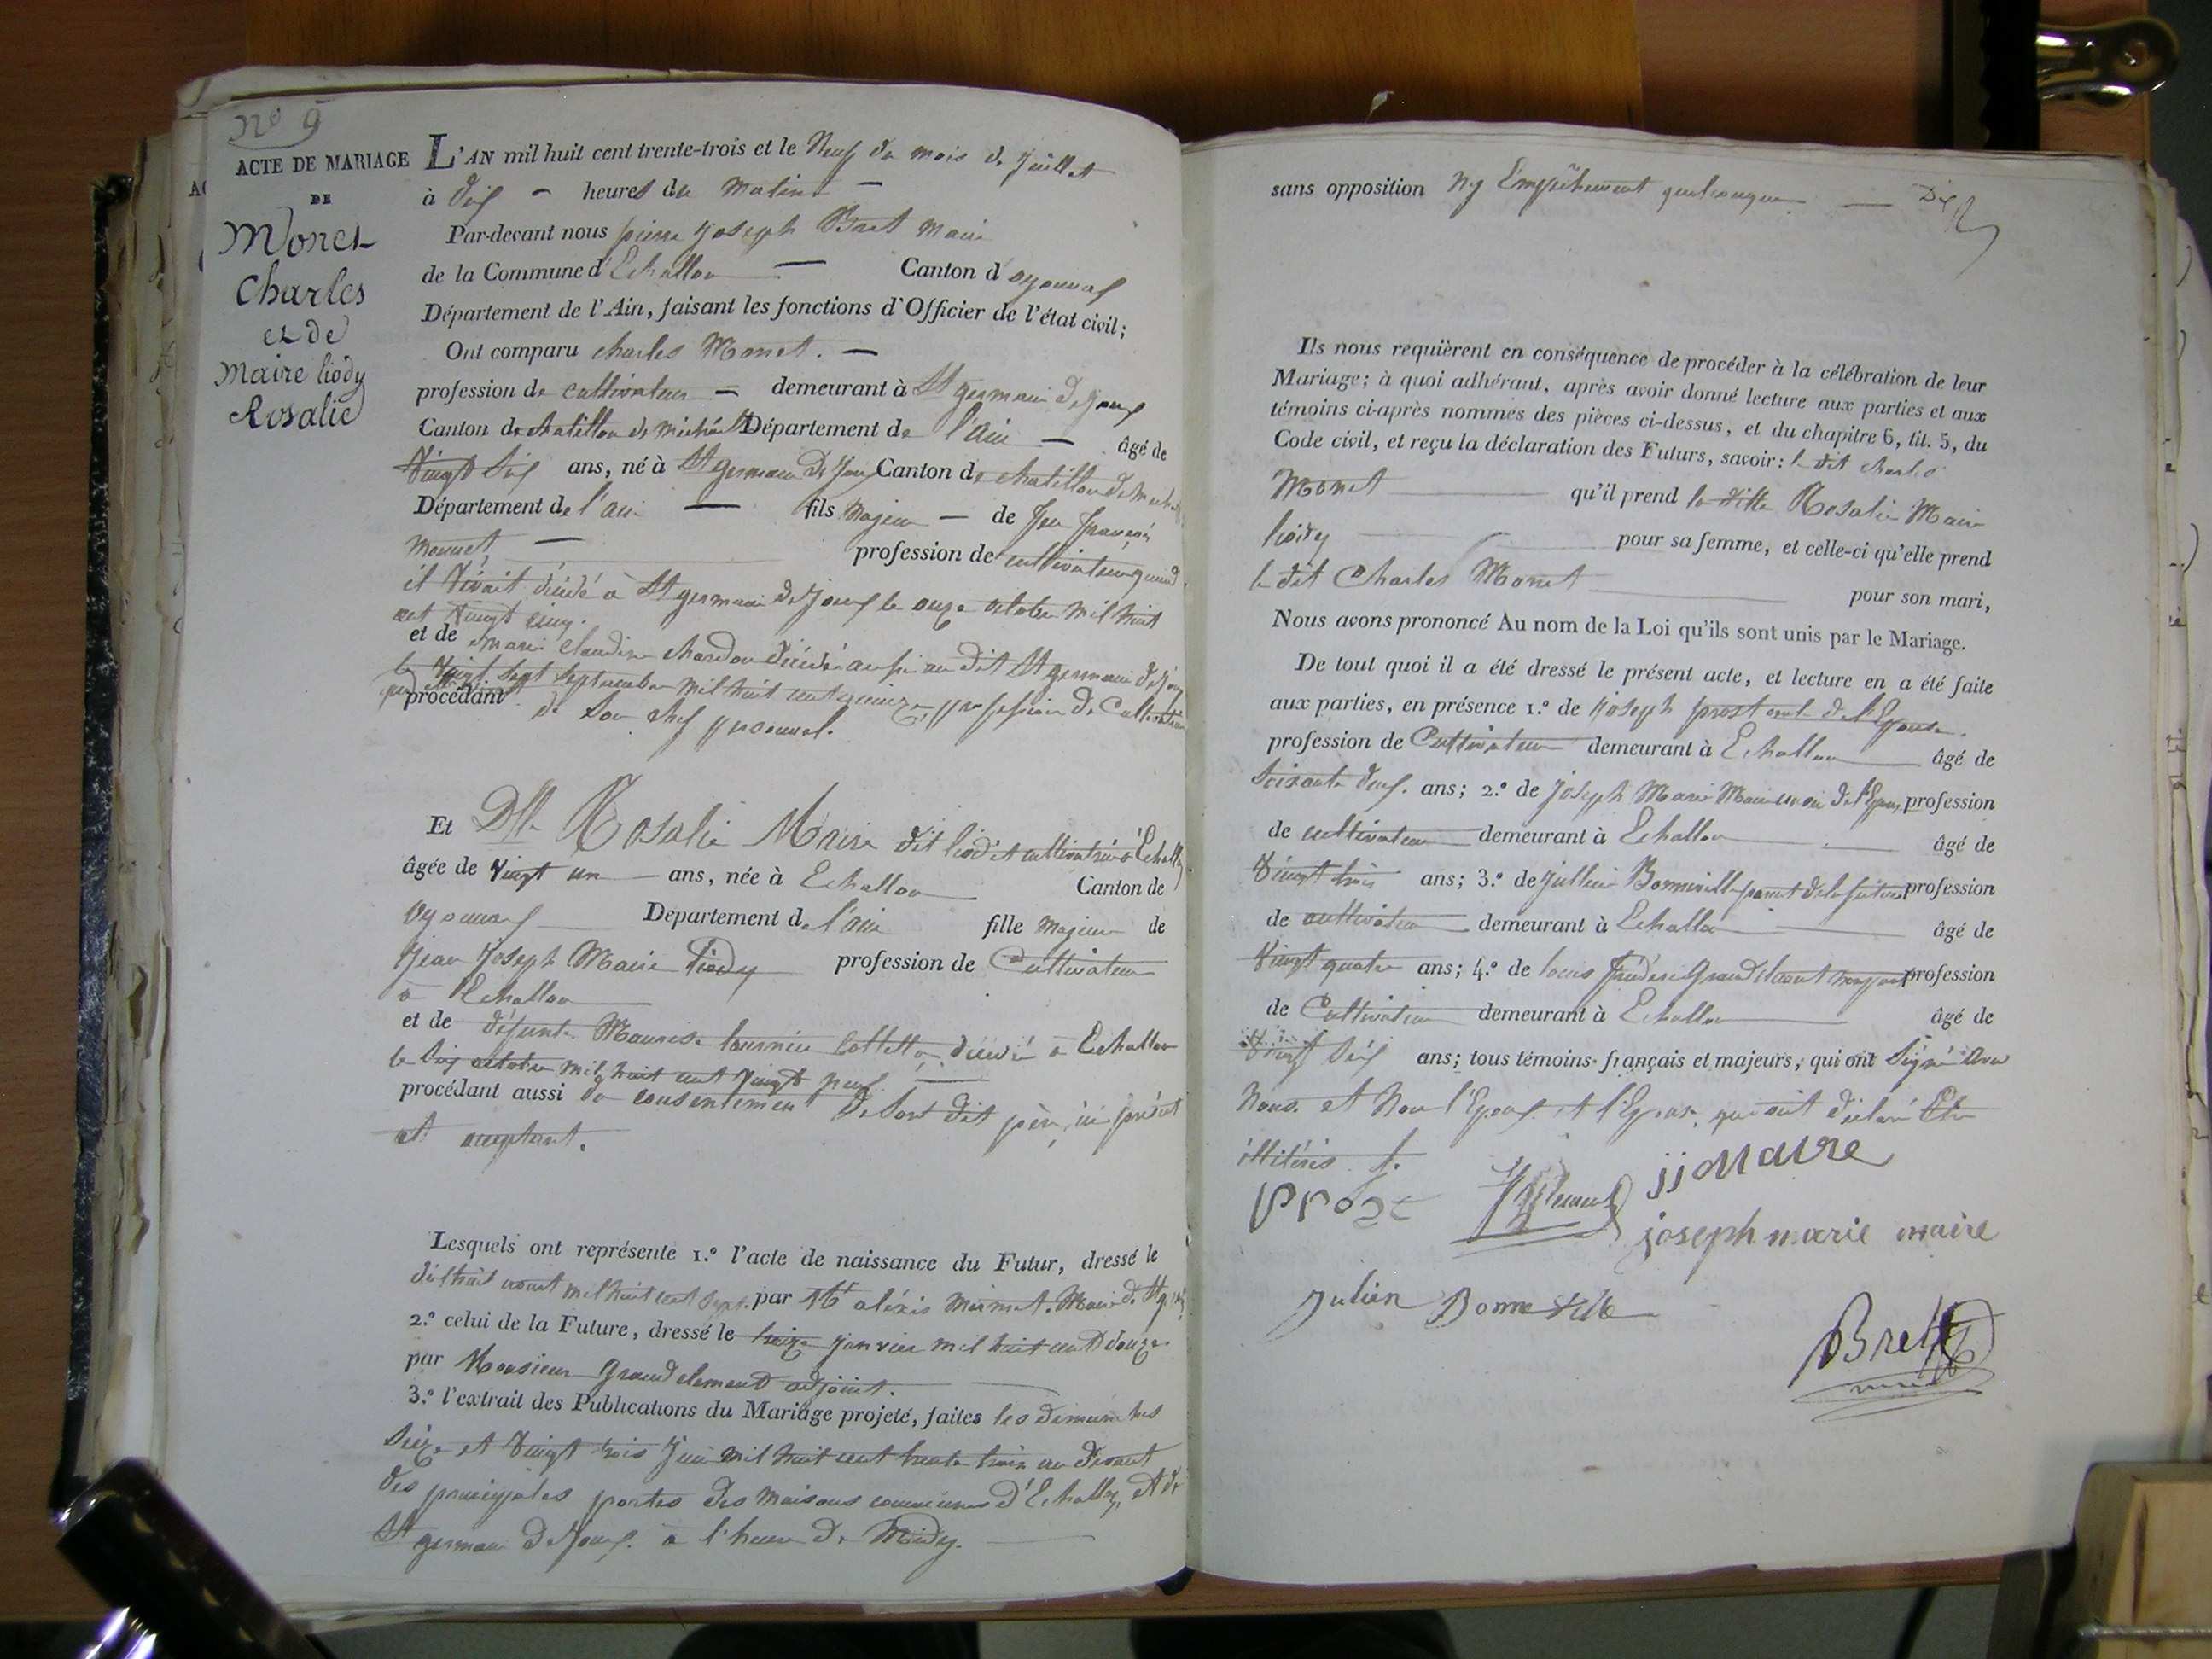 No 9
ACTE DE MARIAGE
DE
Monet
Charles
et de
Maire liody
Rosalie
L'AN mil huit cent trente-trois et le Neuf du mois de juillet
à dix heures du Matin
Par-devant nous pierre joseph Bret Maire
de la Commune d'Echallon Canton d'oyonnax
Département de l'Ain, faisant les fonctions d'Officier de l'état civil;
Ont comparu charles Monet.
profession de cultivateur demeurant à St germain de joux
Canton de chatillon de michaille Département de l'ain âgé de
Vingt six ans, né à St germain de joux Canton de chatillon de
Département de l'ain fils Majeur de feu françois
Monnet profession de cultivateur quand
il vivait, décédé à St germain de joux le onze octobre mil huit
cent vingt cinq.
et de marie claudine chardon décédée aussi au dit St germain de joux
le vingt sept septembre mil huit cent quinze, profession de Cultivatrice
procédant de son chef personnel.
Et Dlle Rosalie Maire dit liodit cultivatrice à Echallon
âgée de vingt un ans, née à Echallon Canton de
oyonnax Departement de l'ain fille majeure de
Jean Joseph Maire liody profession de Cultivateur
à Echallon
et de défunte Maurise tournier collet décédée à Echallon
le six octobre mil huit cent vingt neuf.
procédant aussi du consentement de son dit père, ici présent
et acceptant.
Lesquels ont représente 1.º l'acte de naissance du Futur, dressé le
dix huit aout mil huit cent sept. par Mr aléxis mermet. Maire de St
2.º celui de la Future, dressé le treize janvier mil huit cent douze
par Monsieur Grandclement adjoint.
3.º l'extrait des Publications du Mariage projeté, faites les dimanches
seize et vingt trois juin mil huit cent trente trois au devant
des principales portes des maisons communes d'Echallon, et de
St germain de joux. à l'heure de Midy.
sans opposition ny Empêchement quelconque
Ils nous requièrent en conséquence de procéder à la célébration de leur
Mariage; à quoi adhérant, après avoir donné lecture aux parties et aux
témoins ci-après nommés des pièces ci-dessus, et du chapitre 6, tit. 5, du
Code civil, et reçu la déclaration des Futurs, savoir: le dit charles
Monet qu'il prend la ditte Rosalie Maire
liody pour sa femme, et celle-ci qu'elle prend
le dit Charles Monet pour son mari,
Nous avons prononcé Au nom de la Loi qu'ils sont unis par le Mariage.
De tout quoi il a été dressé le présent acte, et lecture en a été faite
aux parties, en présence 1.º de joseph prost de l'Epouse.
profession de Cultivateur demeurant à Echallon âgé de
soixante deux. ans; 2.º de joseph Marie Maire de l'Epouse profession
de cultivateur demeurant à Echallon âgé de
Vingt trois ans; 3.º de jullien Bonneville parent de la future profession
de cultivateur demeurant à Echallon âgé de
Vingt quatre ans; 4.º de louis fréderic Grandclement profession
de Cultivateur demeurant à Echallon âgé de
Vingt six ans; tous témoins français et majeurs, qui ont signé avec
Nous. et Non l'Epoux et l'Epouse, qui ont déclaré Etre
illiterés
Prost
jj Maire
joseph marie maire
Julien Bonneville
Bret